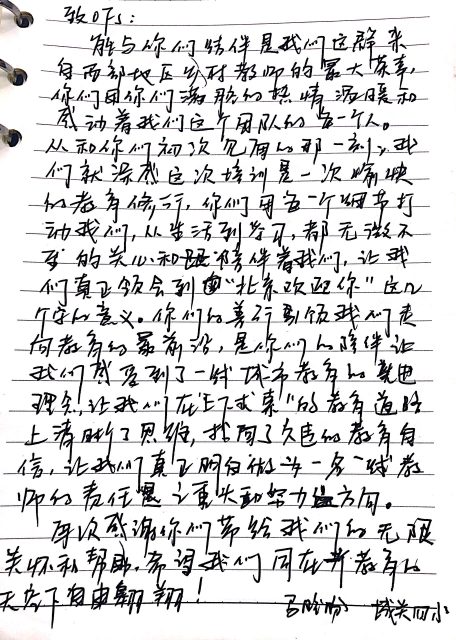 致OFS：
能与你们结伴是我们这群来
自西部地区乡村教师的最大荣幸，
你们用你们满腔的热情温暖和
感动着我们这个团队的每一个人。
从和你们初次见面的那一刻，我
们就深感这次培训是一次愉快
的教育修行，你们用每一个细节打
动我们，从生活到学习，都无微不
至的关心和陪伴着我们，让我
们真正领会到"北京欢迎你"这几
个字的意义。你们的善行引领我们走
向教育的最前沿，是你们的陪伴让
我们感受到了一线城市教育的
理念，让我们在"上下求索"的教育道路
上清晰了思维，找回了久违的教育自
信，让我们真正明白做为一名一线教
师的责任努力方向。
再次感谢你们带给我们的无限
关怀和帮助，希望我们同在教育的
天空下自由翱翔！
城关四小